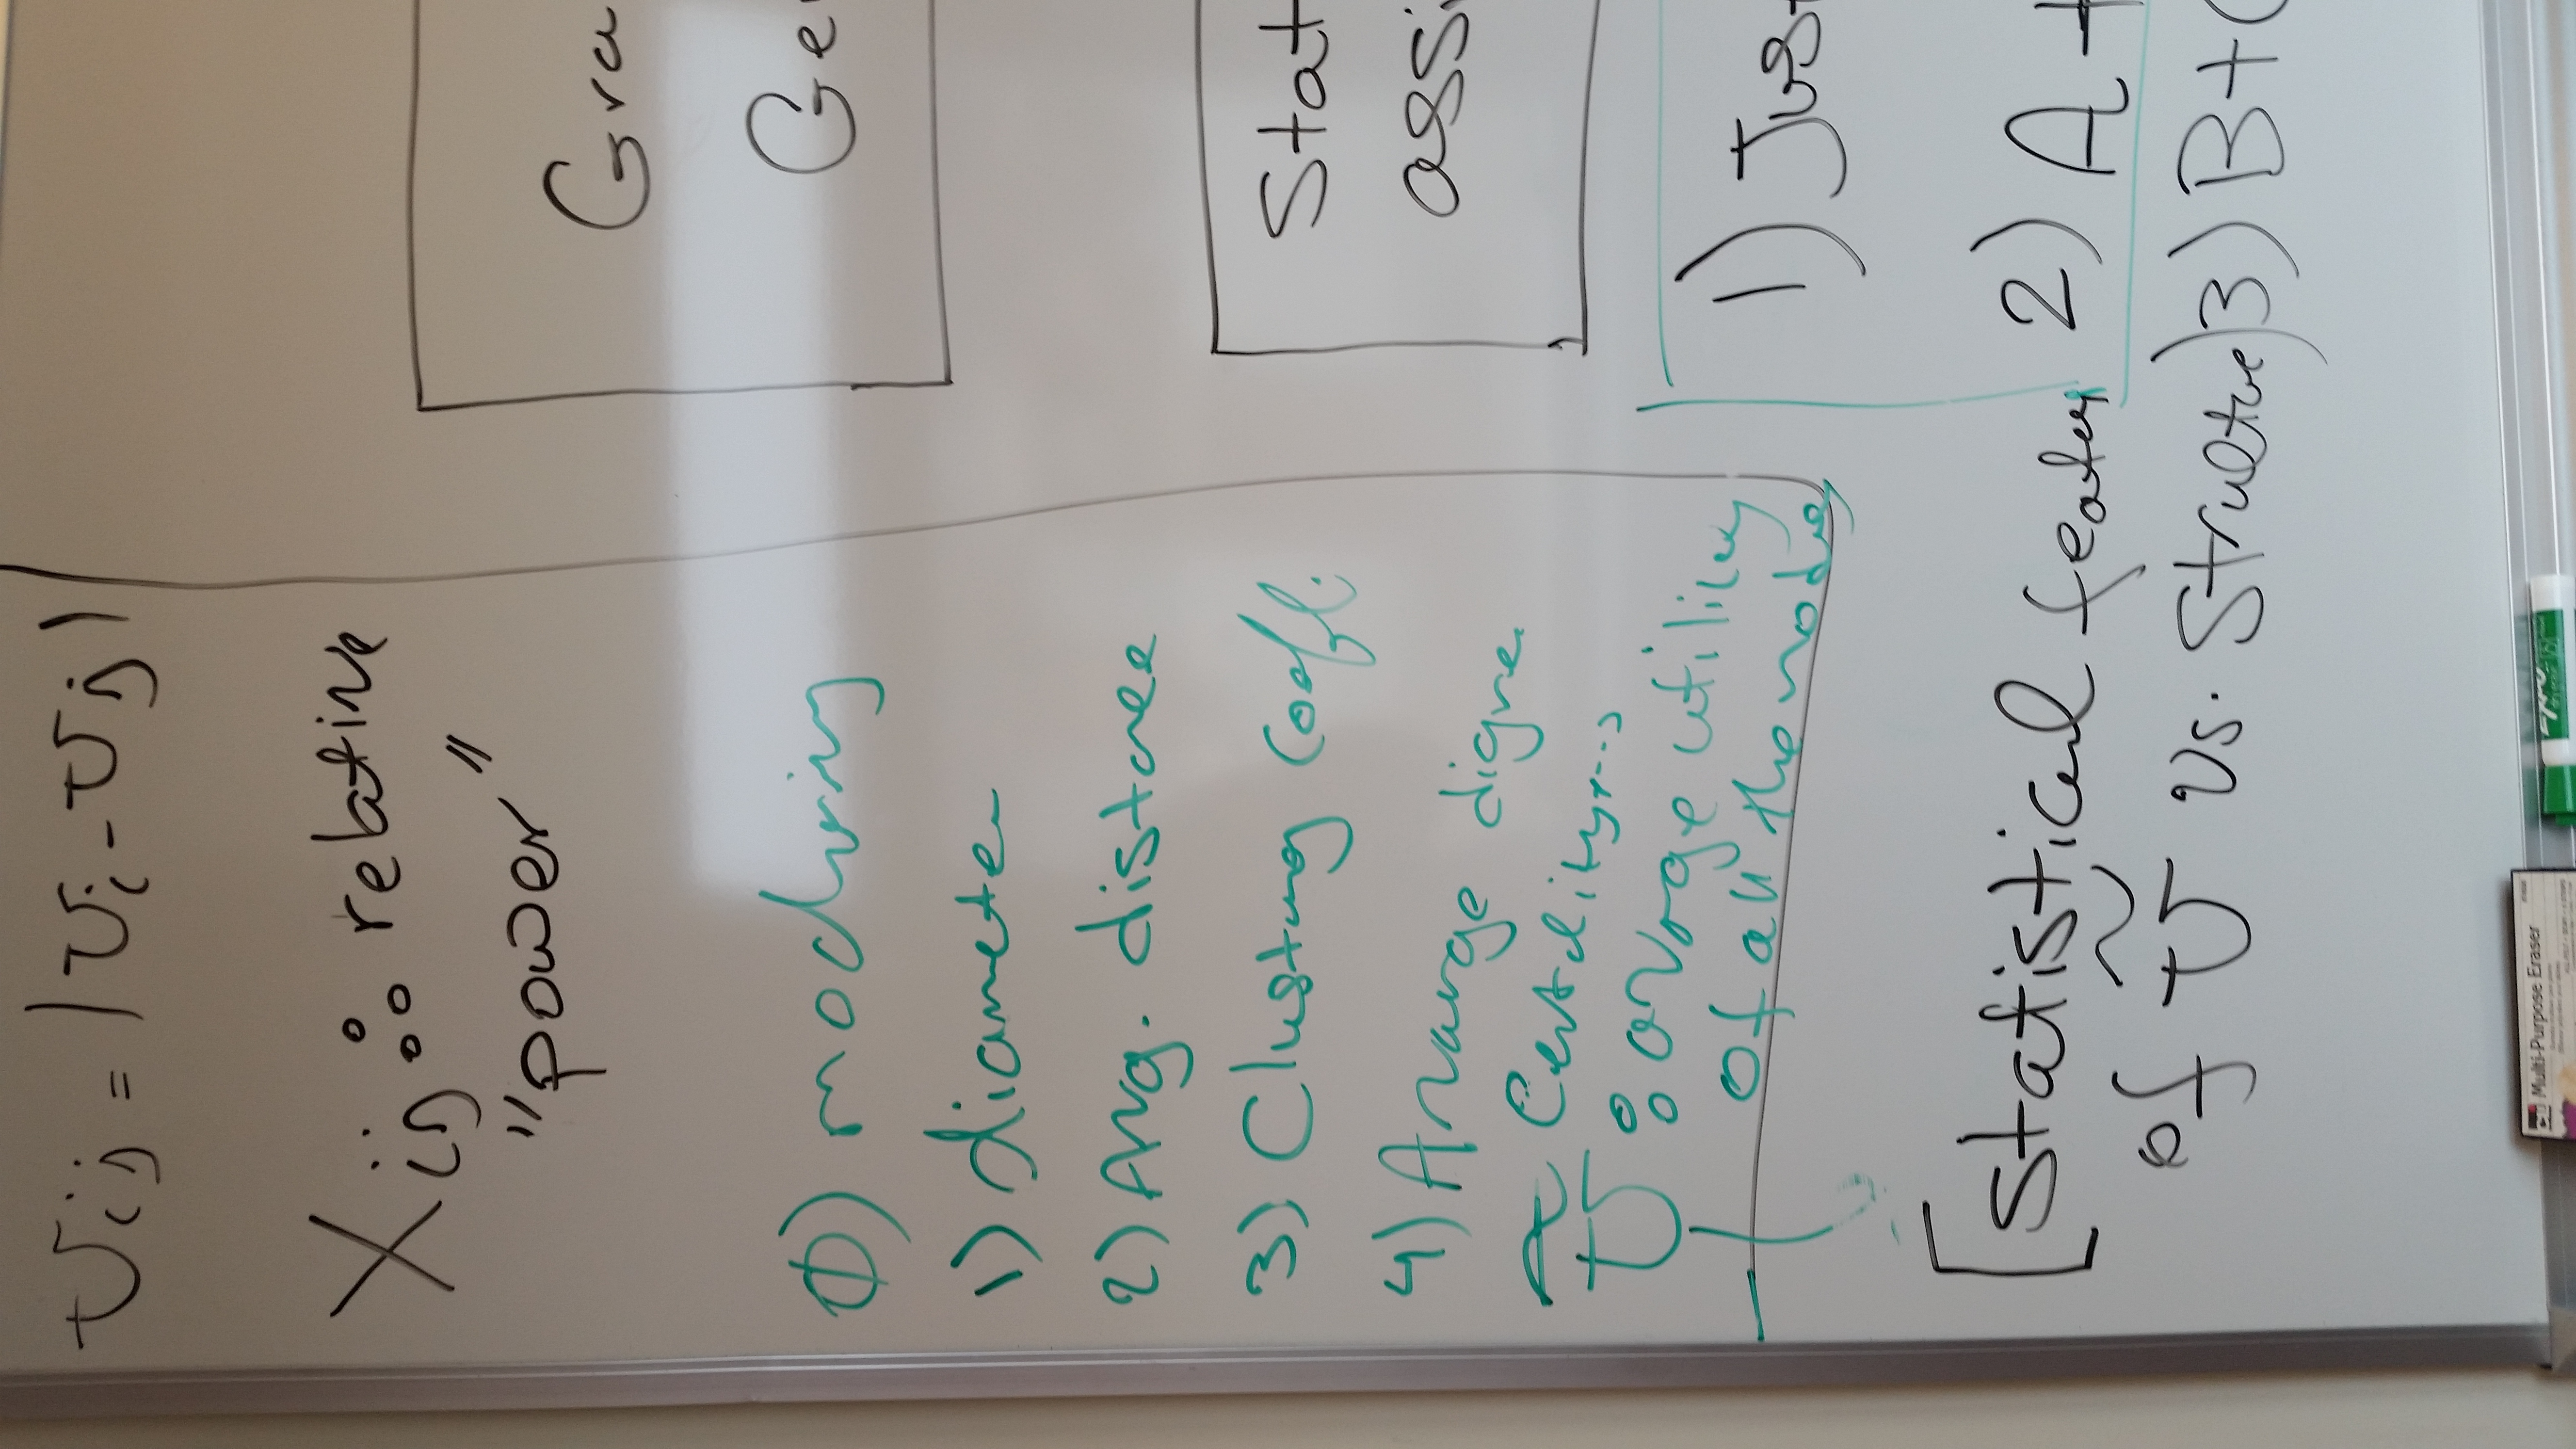 Uij = |Ui - Uj|
Xij : relative
"power"
0)
1) diameter
2) Avg. distance
3) Clustring Coeff.
4) Avarage digree
Centality, ...
Ũ : avrage utility
of all the nodes
[Statistical featues
of Ũ vs. Structue)
Gra
Ge
Stat
assi
1) Jus
2) A +
3) B + (
Multi-Purpose Eraser
EXPO